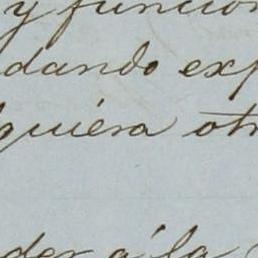 y funcion
dando exp
quiera otr
der á la